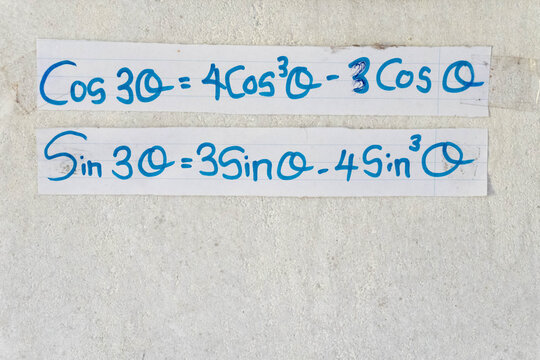 Cos 3θ = 4Cos³θ - 3Cosθ
Sin 3θ = 3Sinθ - 4Sin³θ